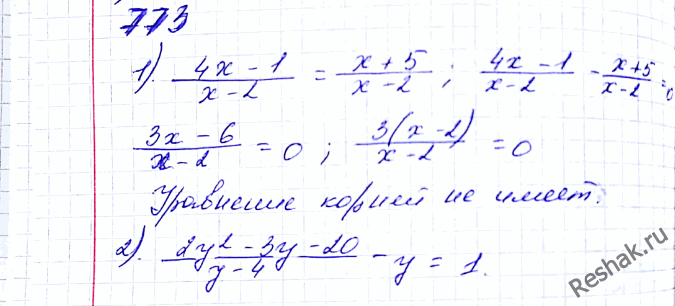 773
1). (4x - 1)/(x - 2) = (x + 5)/(x - 2) ; (4x - 1)/(x - 2) - (x + 5)/(x - 2) = 0
(3x - 6)/(x - 2) = 0 ; 3(x - 2)/(x - 2) = 0
Уравнение корней не имеет.
2). (2y² - 3y - 20)/(y - 4) - y = 1.
Reshak.ru